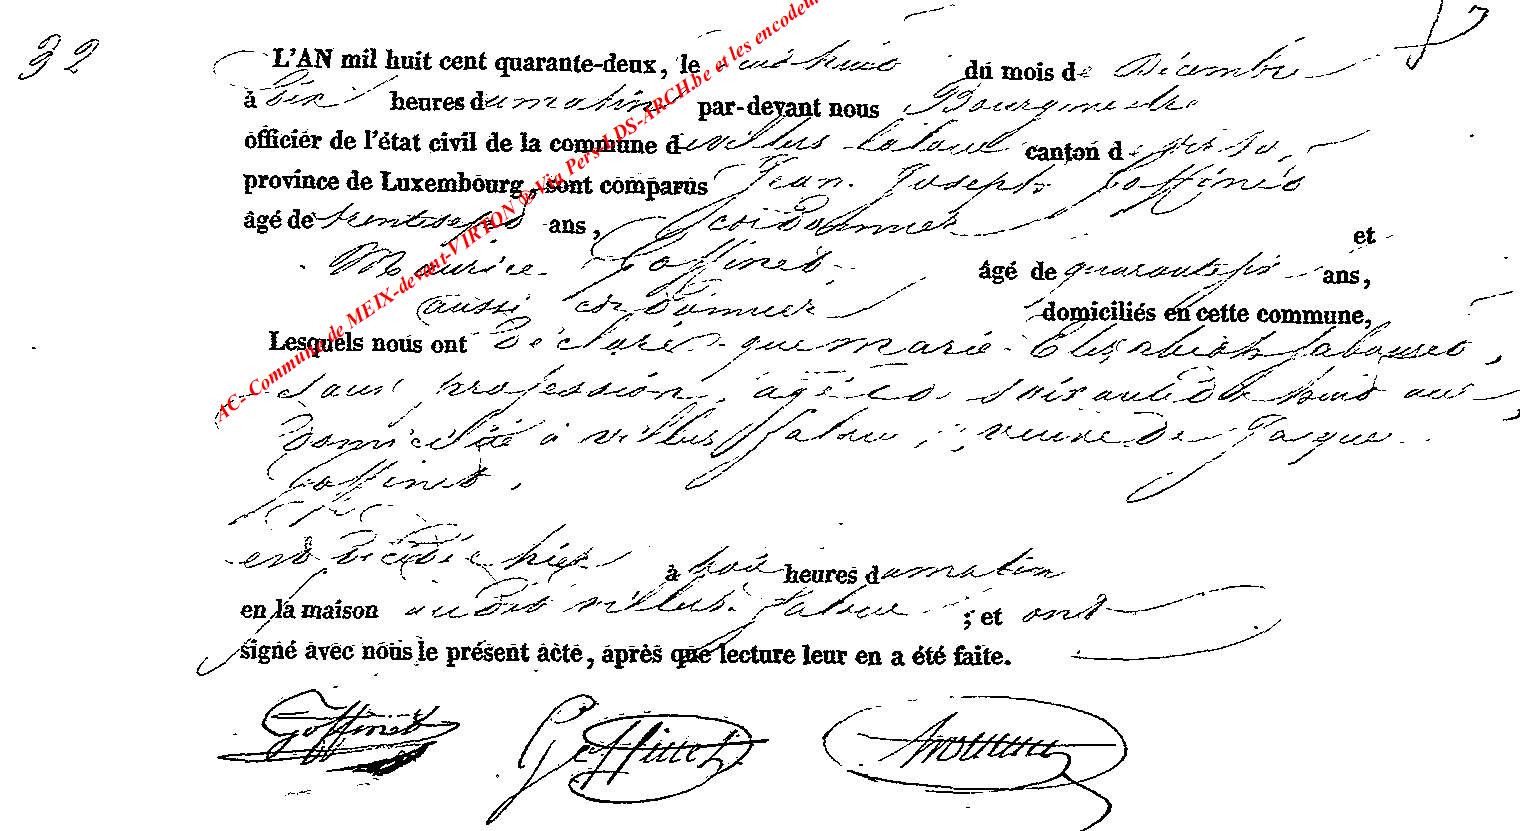 32
L'AN mil huit cent quarante-deux, le vingt huit du mois de Décembre
à dix heures du matin par-devant nous Bourgmestre
officier de l'état civil de la commune de villers laloue canton de virton,
province de Luxembourg, sont comparus Jean Joseph Goffinet
âgé de trente sept ans, cordonnier et
Maurice Goffinet âgé de quarante six ans,
aussi cordonnier domiciliés en cette commune,
Lesquels nous ont Déclaré que marie Elisabeth
sans profession, agée de soixante Dix huit ans,
Domiciliée à villers laloue, veuve De Jacque
Goffinet,
est décédée hier à huit heures du matin
en la maison audit villers laloue ; et ont
signé avec nous le présent acte, après que lecture leur en a été faite.
Goffinet Goffinet
AC- Commune de MEIX-devant-VIRTON © Via Pers-LDS-ARCH.be et les encodeur